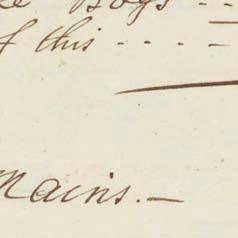 Boys - -
of this - - - -
Mains. -